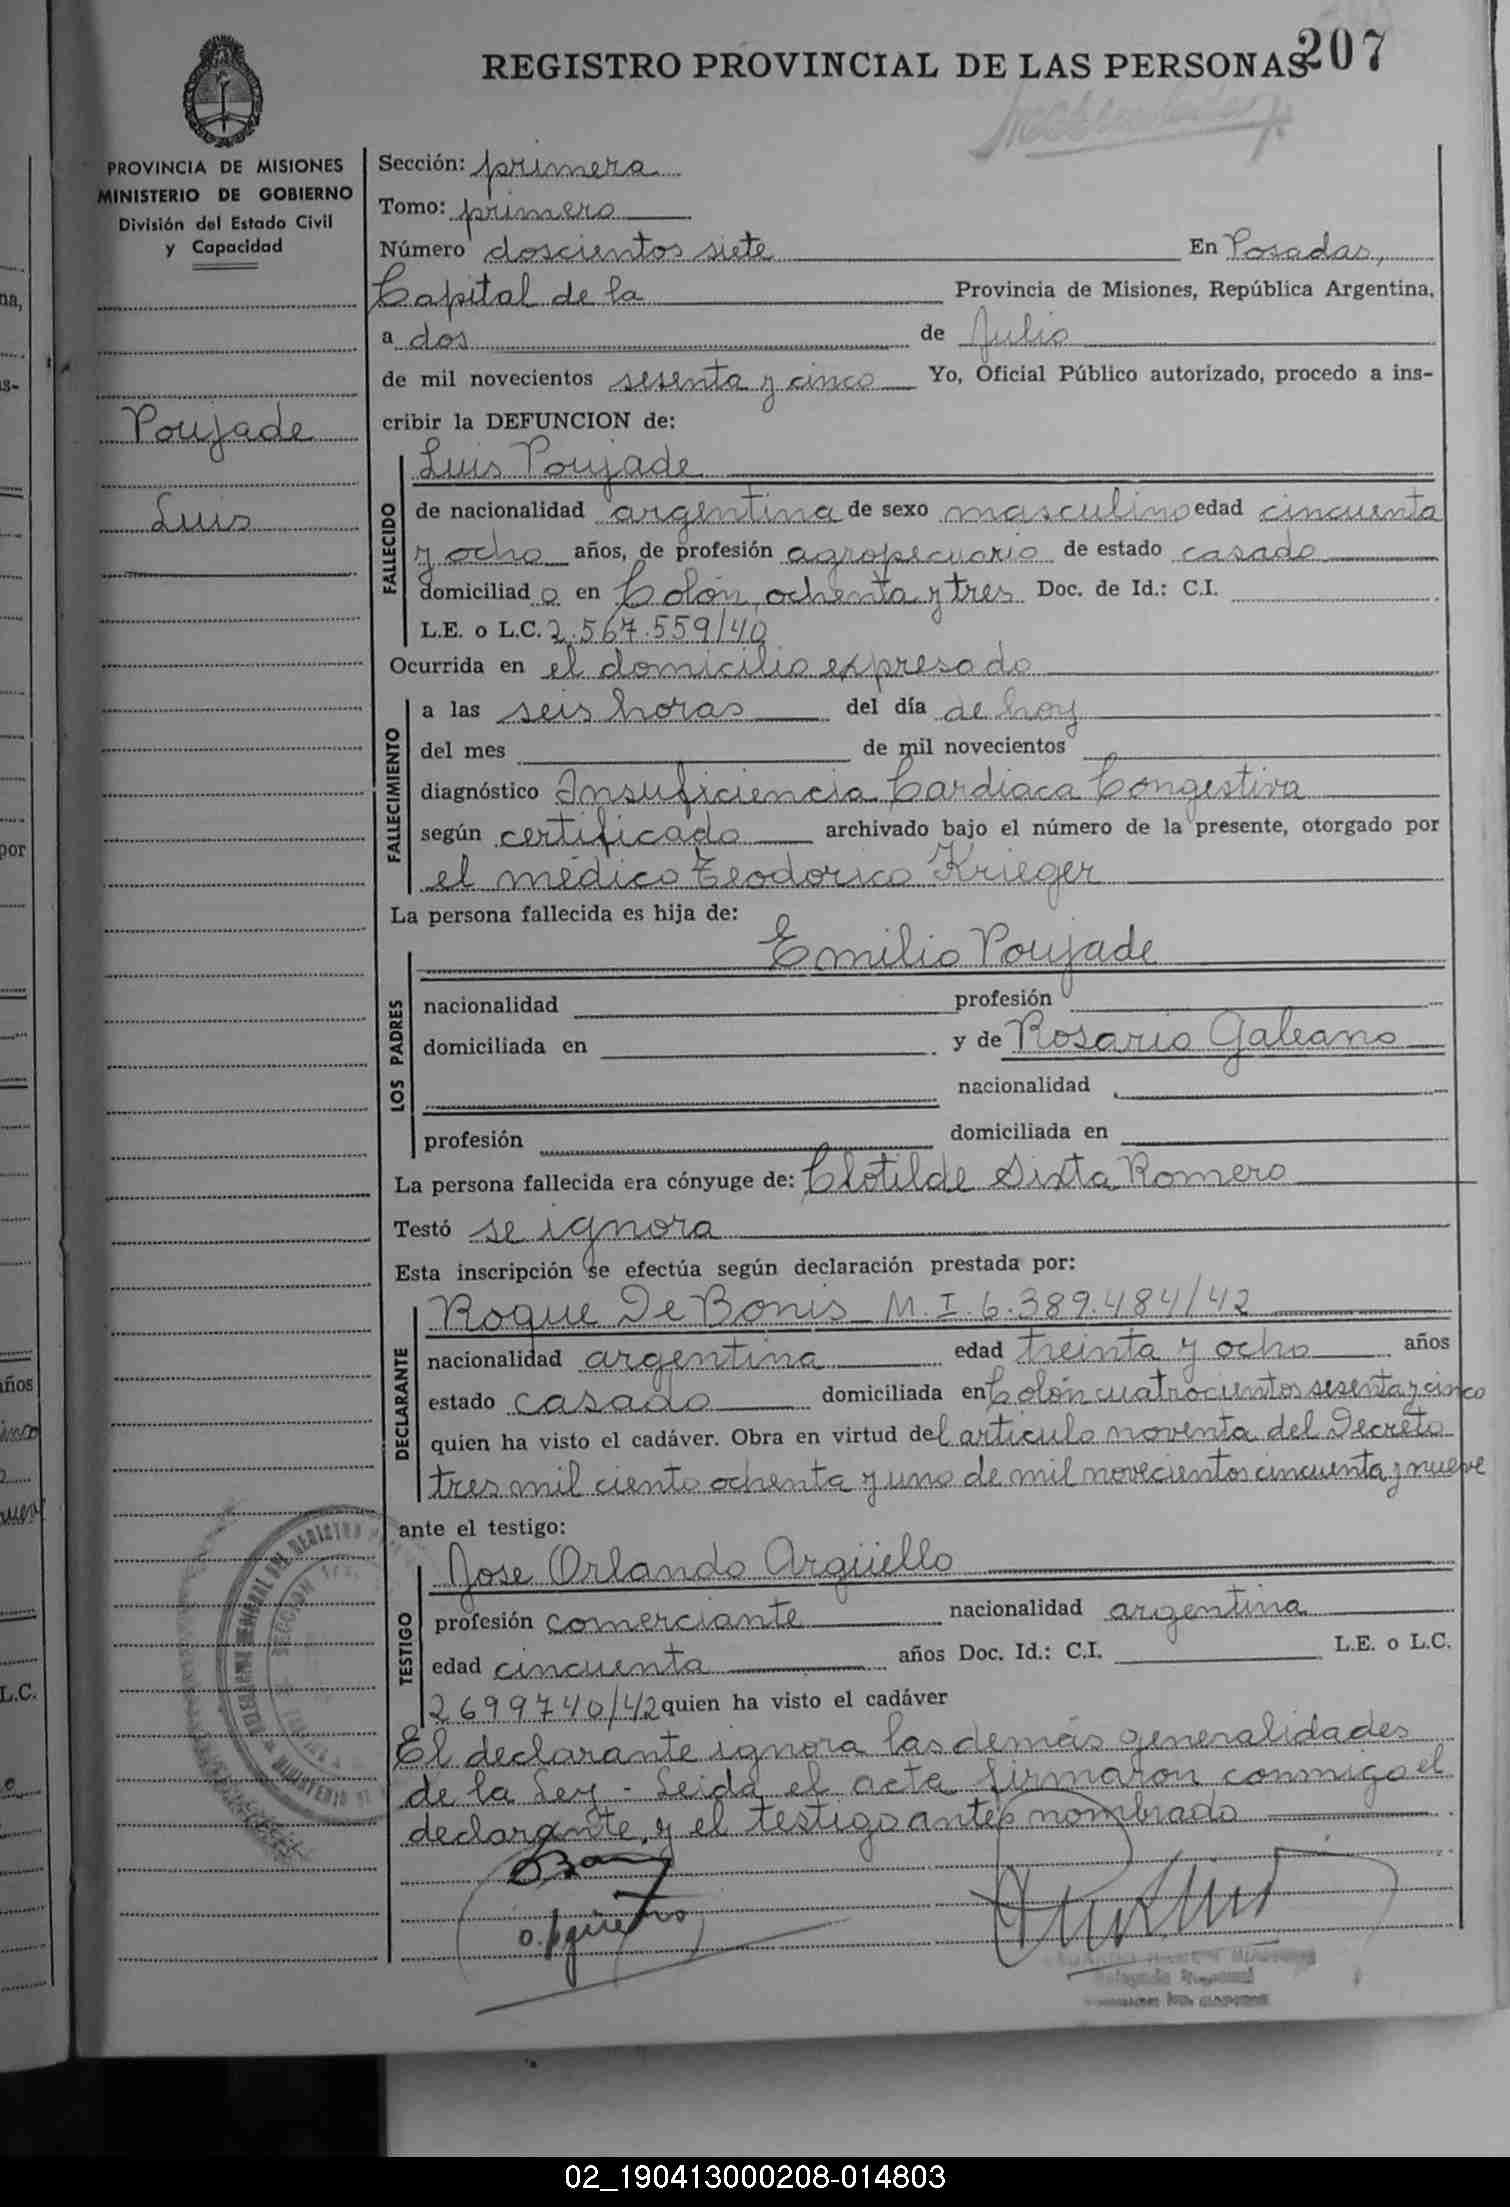 REGISTRO PROVINCIAL DE LAS PERSONAS 207
PROVINCIA DE MISIONES
MINISTERIO DE GOBIERNO
División del Estado Civil
y Capacidad
Poujade
Luis
Sección: primera
Tomo: primero
Número doscientos siete En Posadas,
Capital de la Provincia de Misiones, República Argentina,
a dos de Julio
de mil novecientos sesenta y cinco Yo, Oficial Público autorizado, procedo a ins-
cribir la DEFUNCION de:
FALLECIDO
Luis Poujade
de nacionalidad argentina de sexo masculino edad cincuenta
y ocho años, de profesión agropecuario de estado casado
domiciliado en Colón, ochenta y tres Doc. de Id.: C.I.
L.E. o L.C. 2.567.559/40
Ocurrida en el domicilio expresado
FALLECIMIENTO
a las seis horas del día de hoy
del mes de mil novecientos
diagnóstico Insuficiencia Cardiaca Congestiva
según certificado archivado bajo el número de la presente, otorgado por
el médico Teodorico Krieger
La persona fallecida es hija de:
LOS PADRES
Emilio Poujade
nacionalidad profesión
domiciliada en y de Rosario Galeano
nacionalidad
profesión domiciliada en
La persona fallecida era cónyuge de: Clotilde Sixta Romero
Testó se ignora
Esta inscripción se efectúa según declaración prestada por:
DECLARANTE
Roque De Bonis M.I. 6.389.484/42
nacionalidad argentina edad treinta y ocho años
estado casado domiciliada en Colón cuatrocientos sesenta y cinco
quien ha visto el cadáver. Obra en virtud del articulo noventa del Decreto
tres mil ciento ochenta y uno de mil novecientos cincuenta y nueve
ante el testigo:
TESTIGO
Jose Orlando Argüello
profesión comerciante nacionalidad argentina
edad cincuenta años Doc. Id.: C.I. L.E. o L.C.
2699740/42 quien ha visto el cadáver
El declarante ignora las demás generalidades
de la Ley - Leida el acta firmaron conmigo el
declarante, y el testigo antes nombrado
02_190413000208-014803